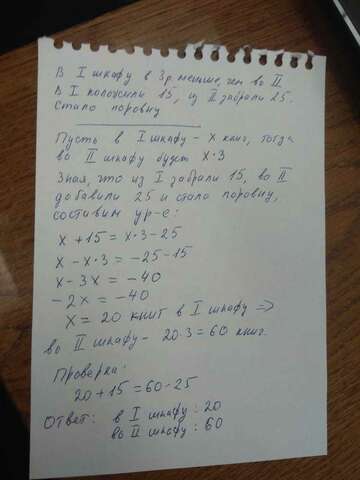 В I шкафу в 3 р. меньше, чем во II.
В I положили 15, из II забрали 25.
Стало поровну
Пусть в I шкафу - x книг, тогда
во II шкафу будет x·3
Зная, что из I забрали 15, во II
добавили 25 и стало поровну,
составим ур-е:
x + 15 = x·3 - 25
x - x·3 = -25 - 15
x - 3x = -40
-2x = -40
x = 20 книг в I шкафу =>
во II шкафу - 20·3 = 60 книг.
Проверка:
20 + 15 = 60 - 25
Ответ: в I шкафу: 20
во II шкафу: 60